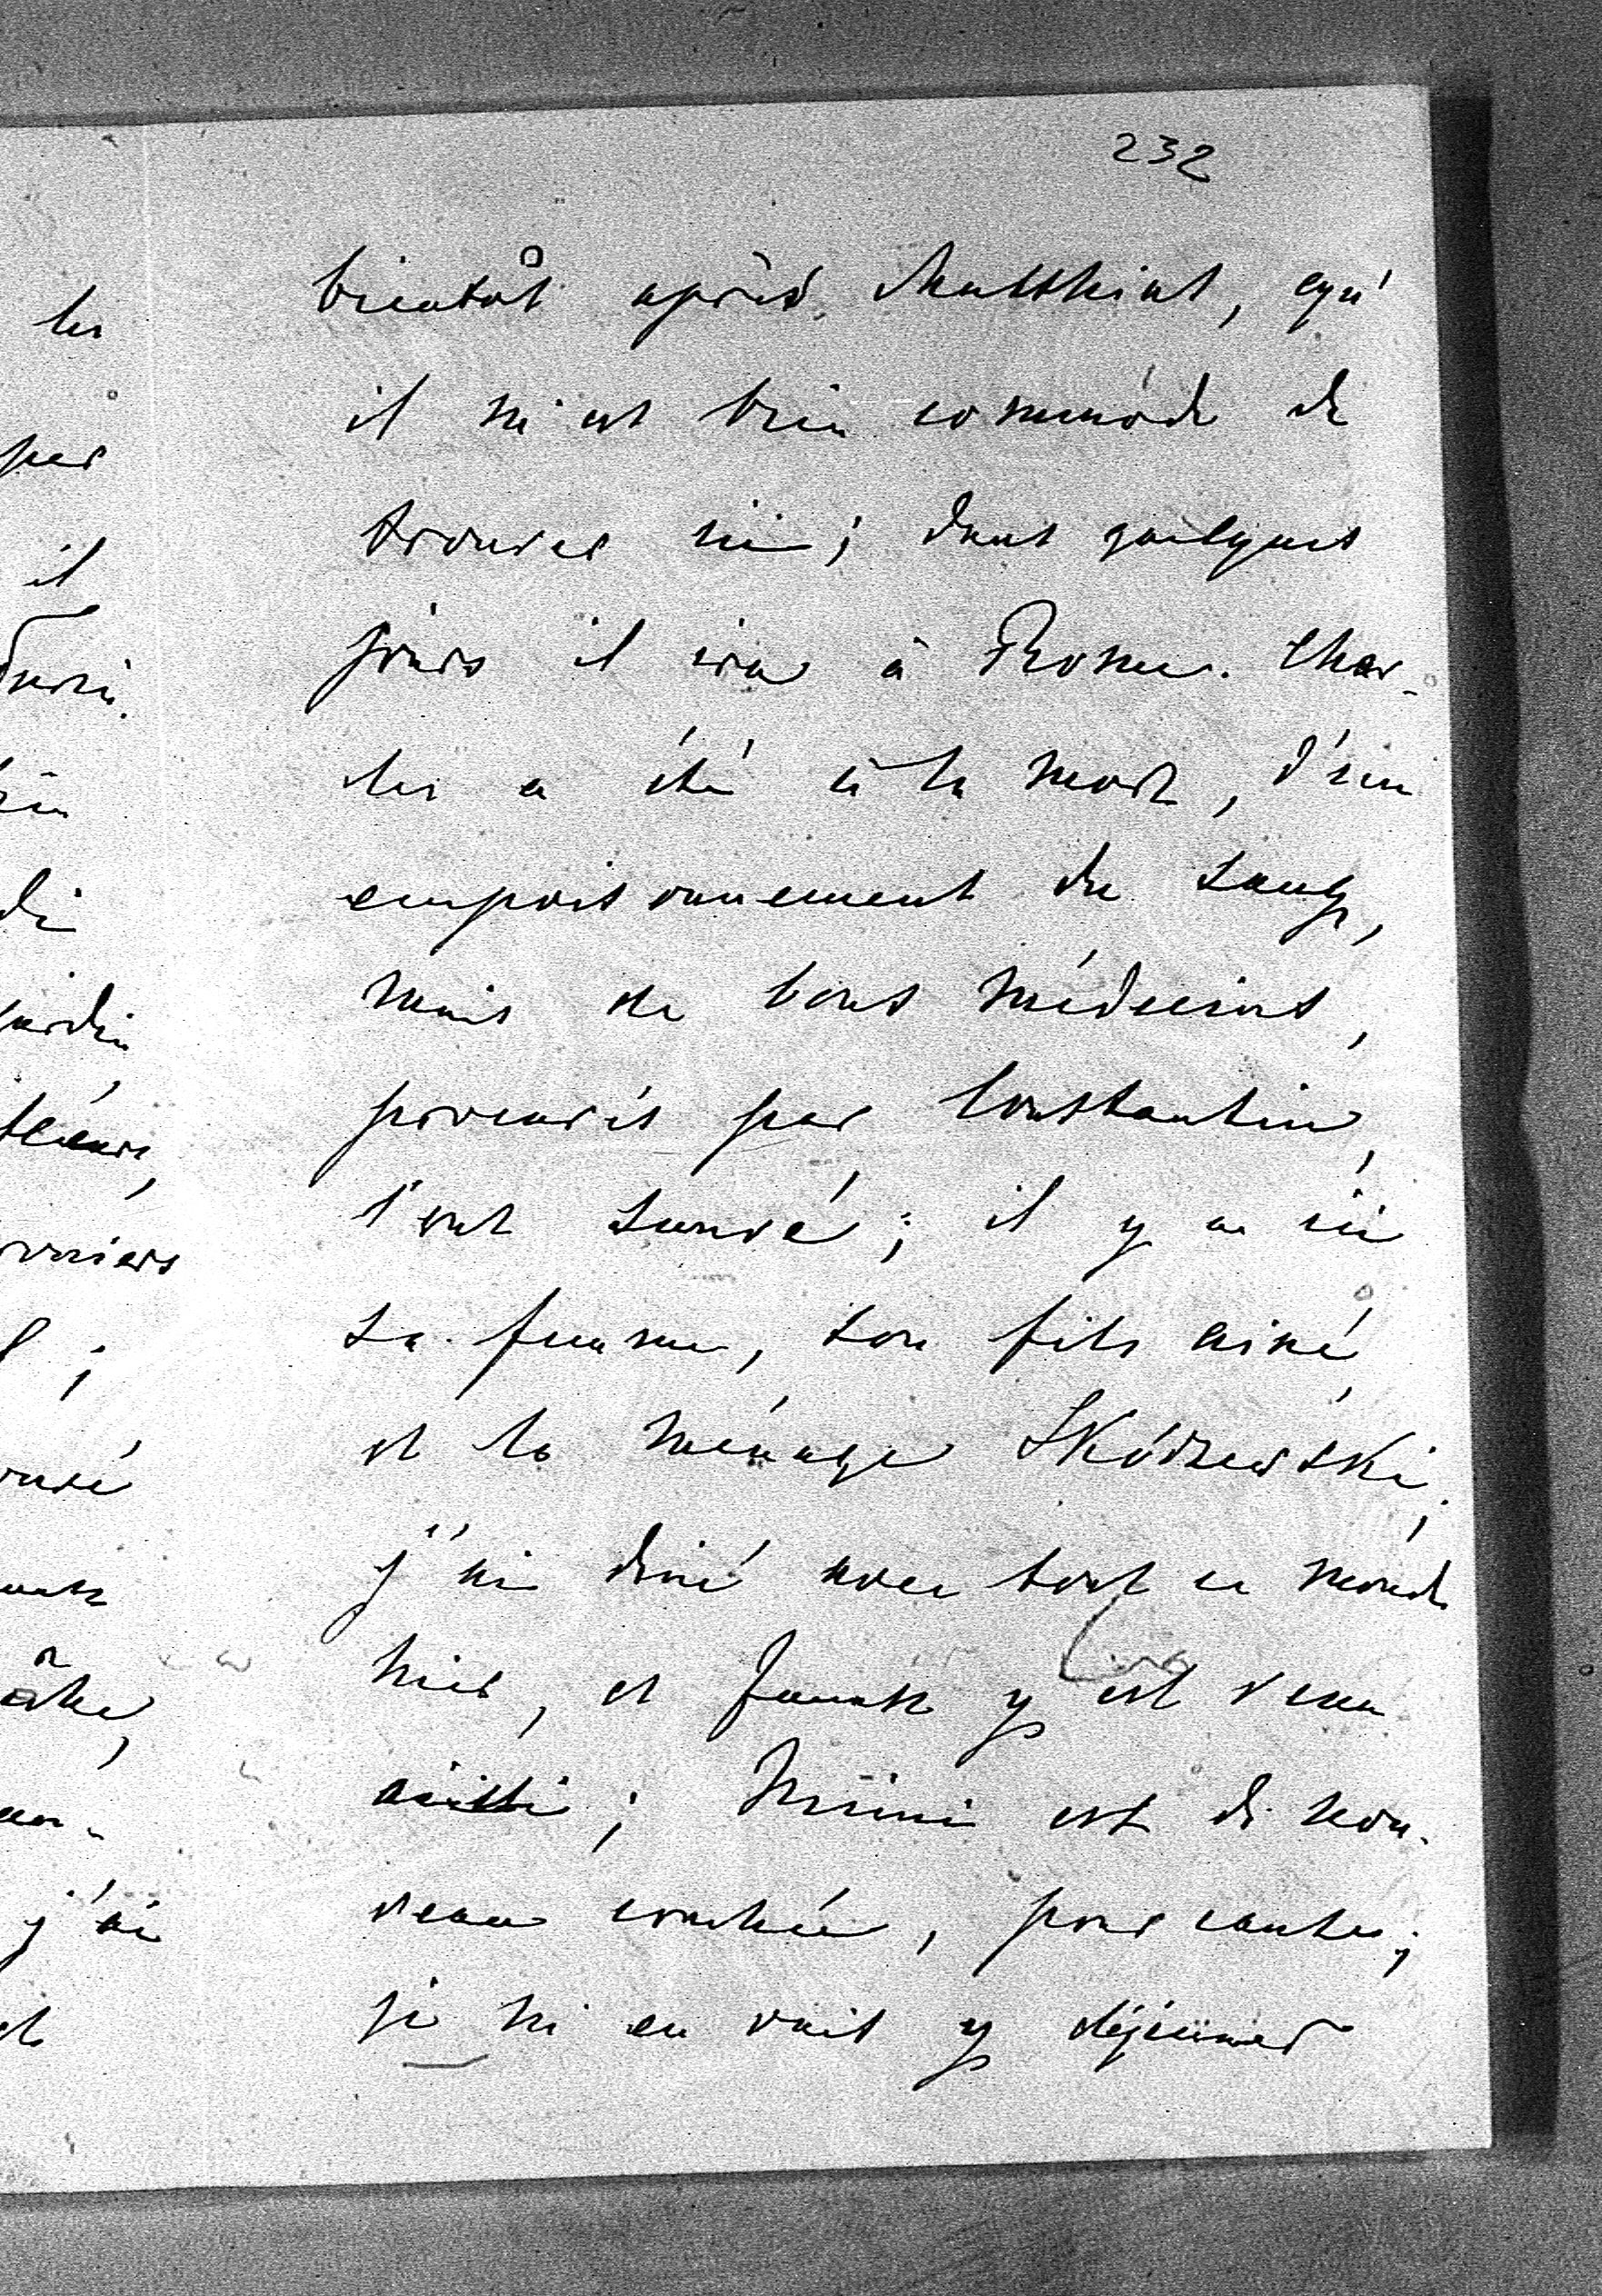 232
bientôt après Matthias, qu'
il m'est bien commode de
trouver ici; dans quelques
jours il ira à Rome. Char-
les a été à la mort, d'un
empoisonnement du sang,
mais de bons médecins,
procurés par Constantin,
l'ont sauvé; il y a ici
sa femme, son fils ainé,
et le ménage Skórzewski;
j'ai diné avec tout ce monde
hier, et Franz y est venu
aussi; Mimi est de nou-
veau couchée, pour cause;
je m'en vais y déjeuner
les
par
il
j'ai